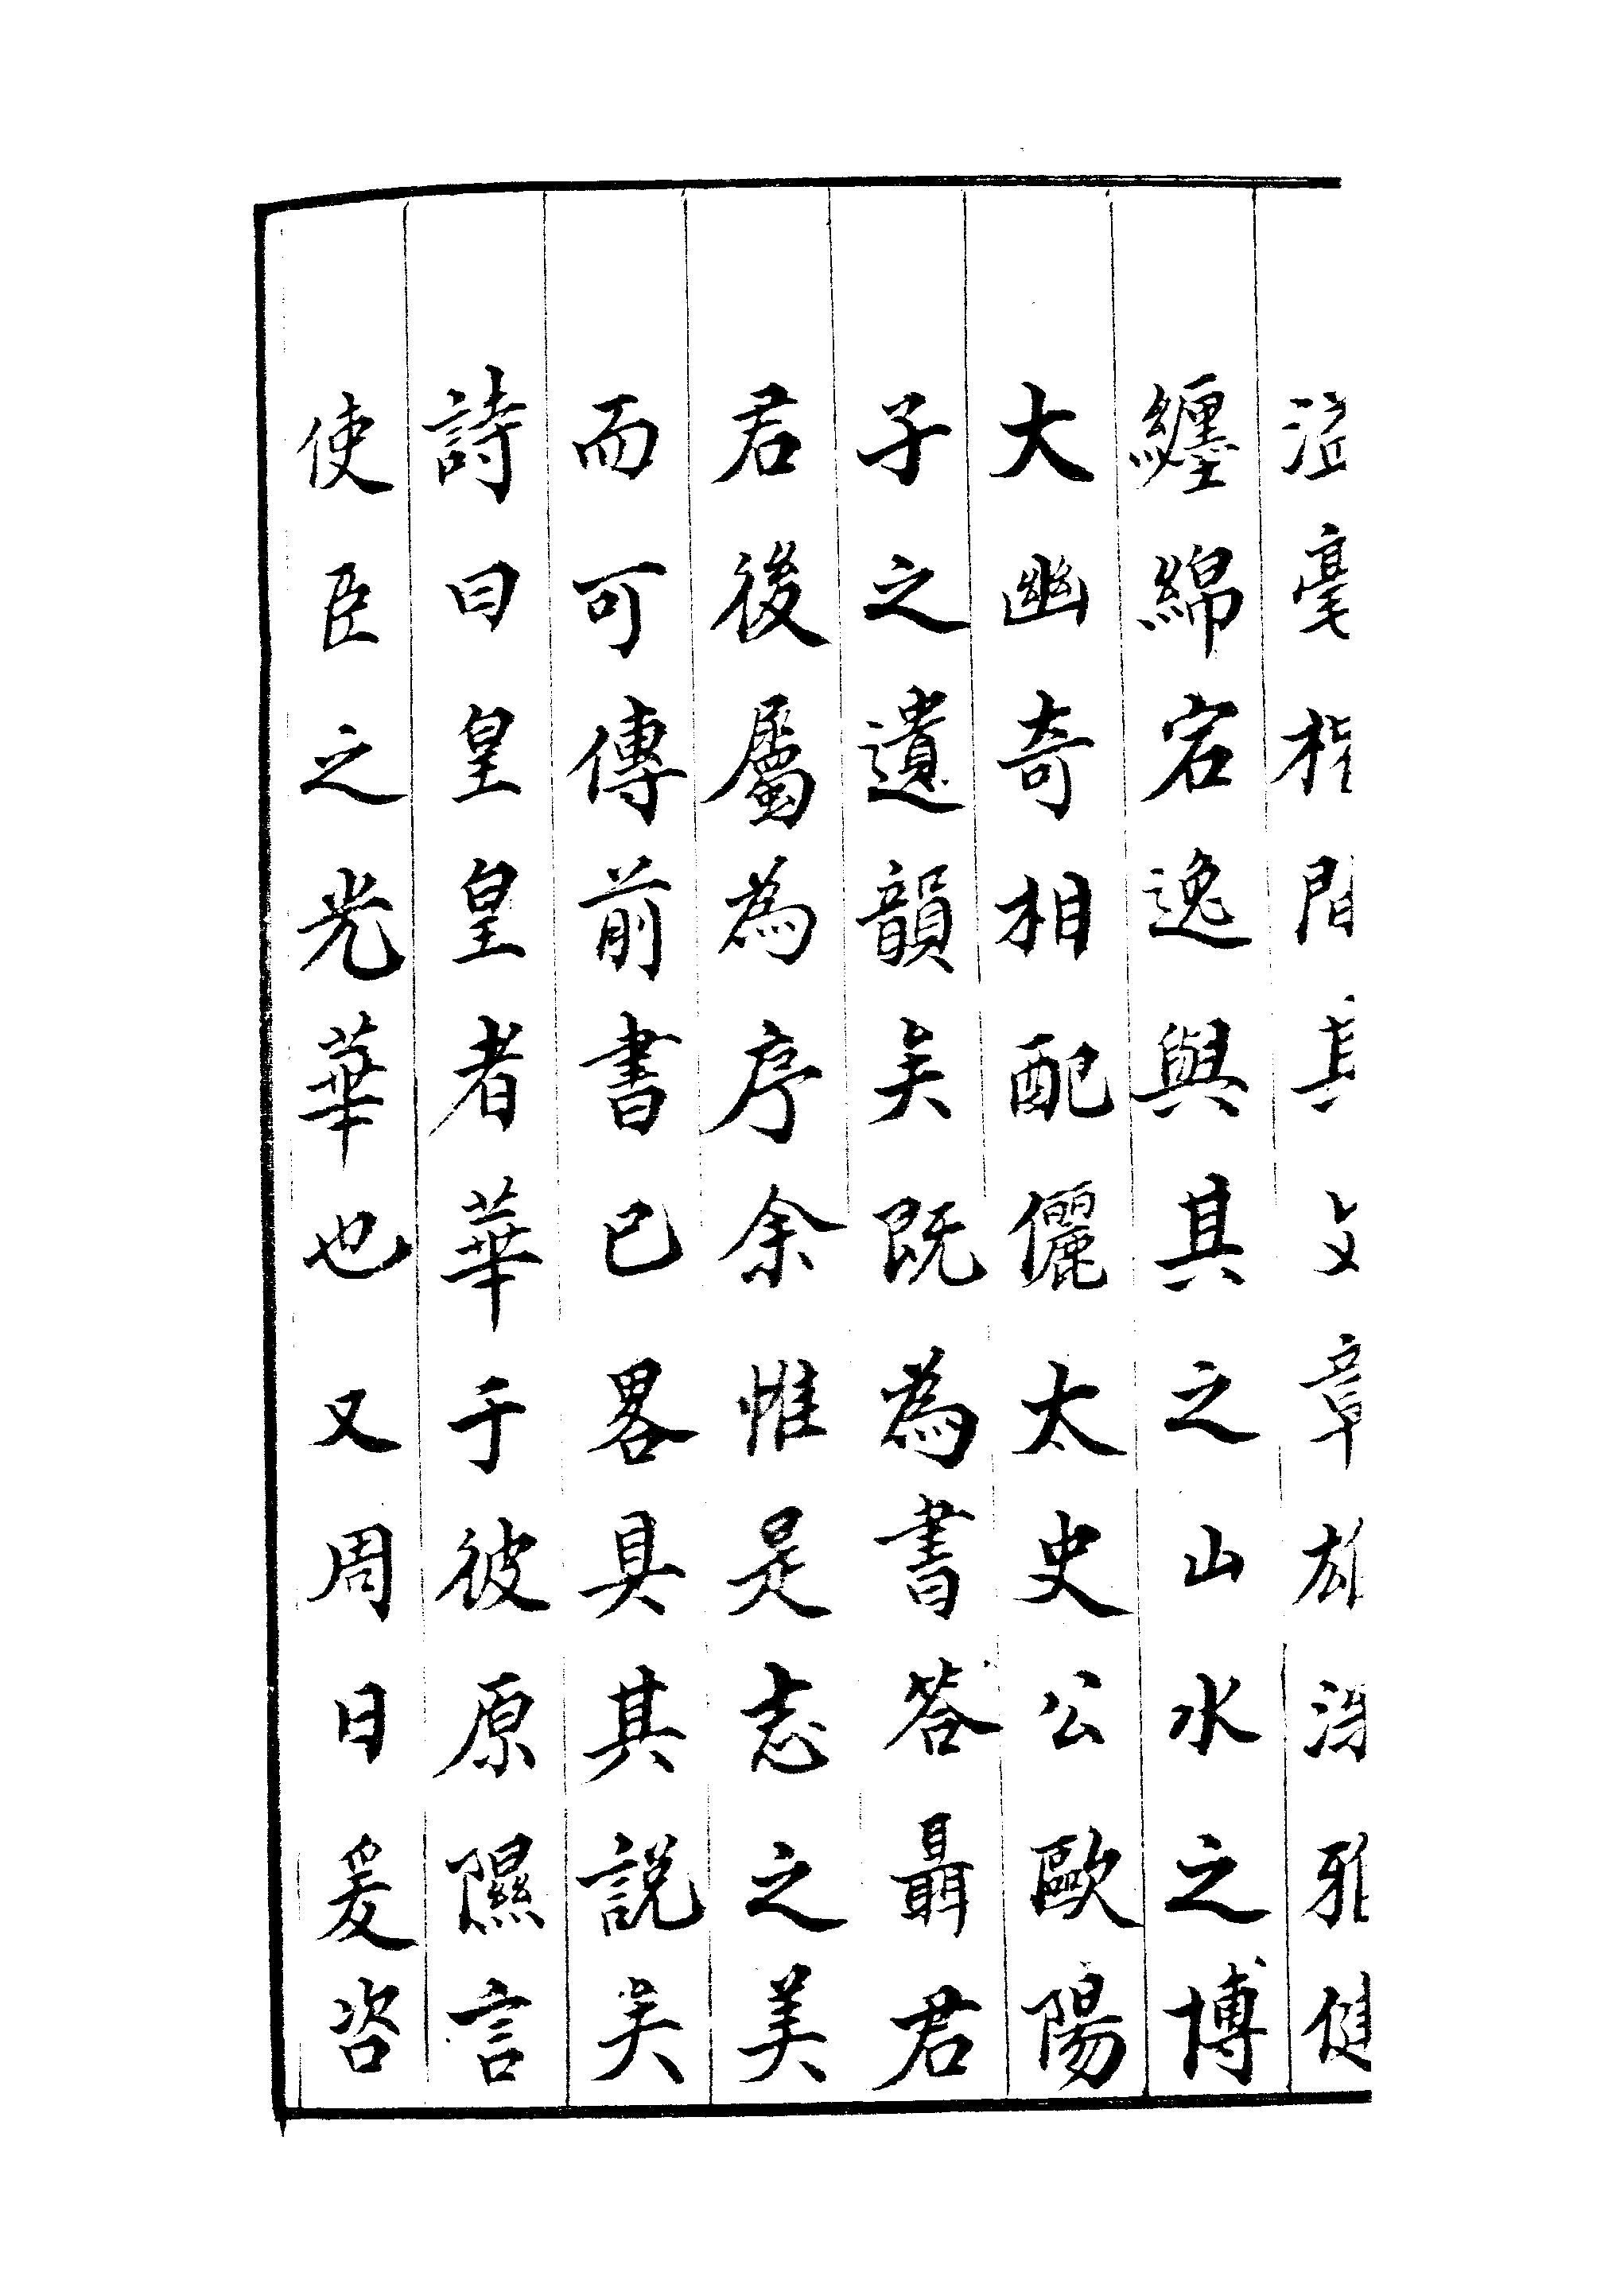 溢毫楮間其文章雄深雅健
纏綿宕逸與其之山水之博
大幽奇相配儷太史公歐陽
子之遺韻矣既為書答聶君
君後屬為序余惟是志之美
而可傳前書已畧具其說矣
詩曰皇皇者華于彼原隰言
使臣之光華也又周日爰咨